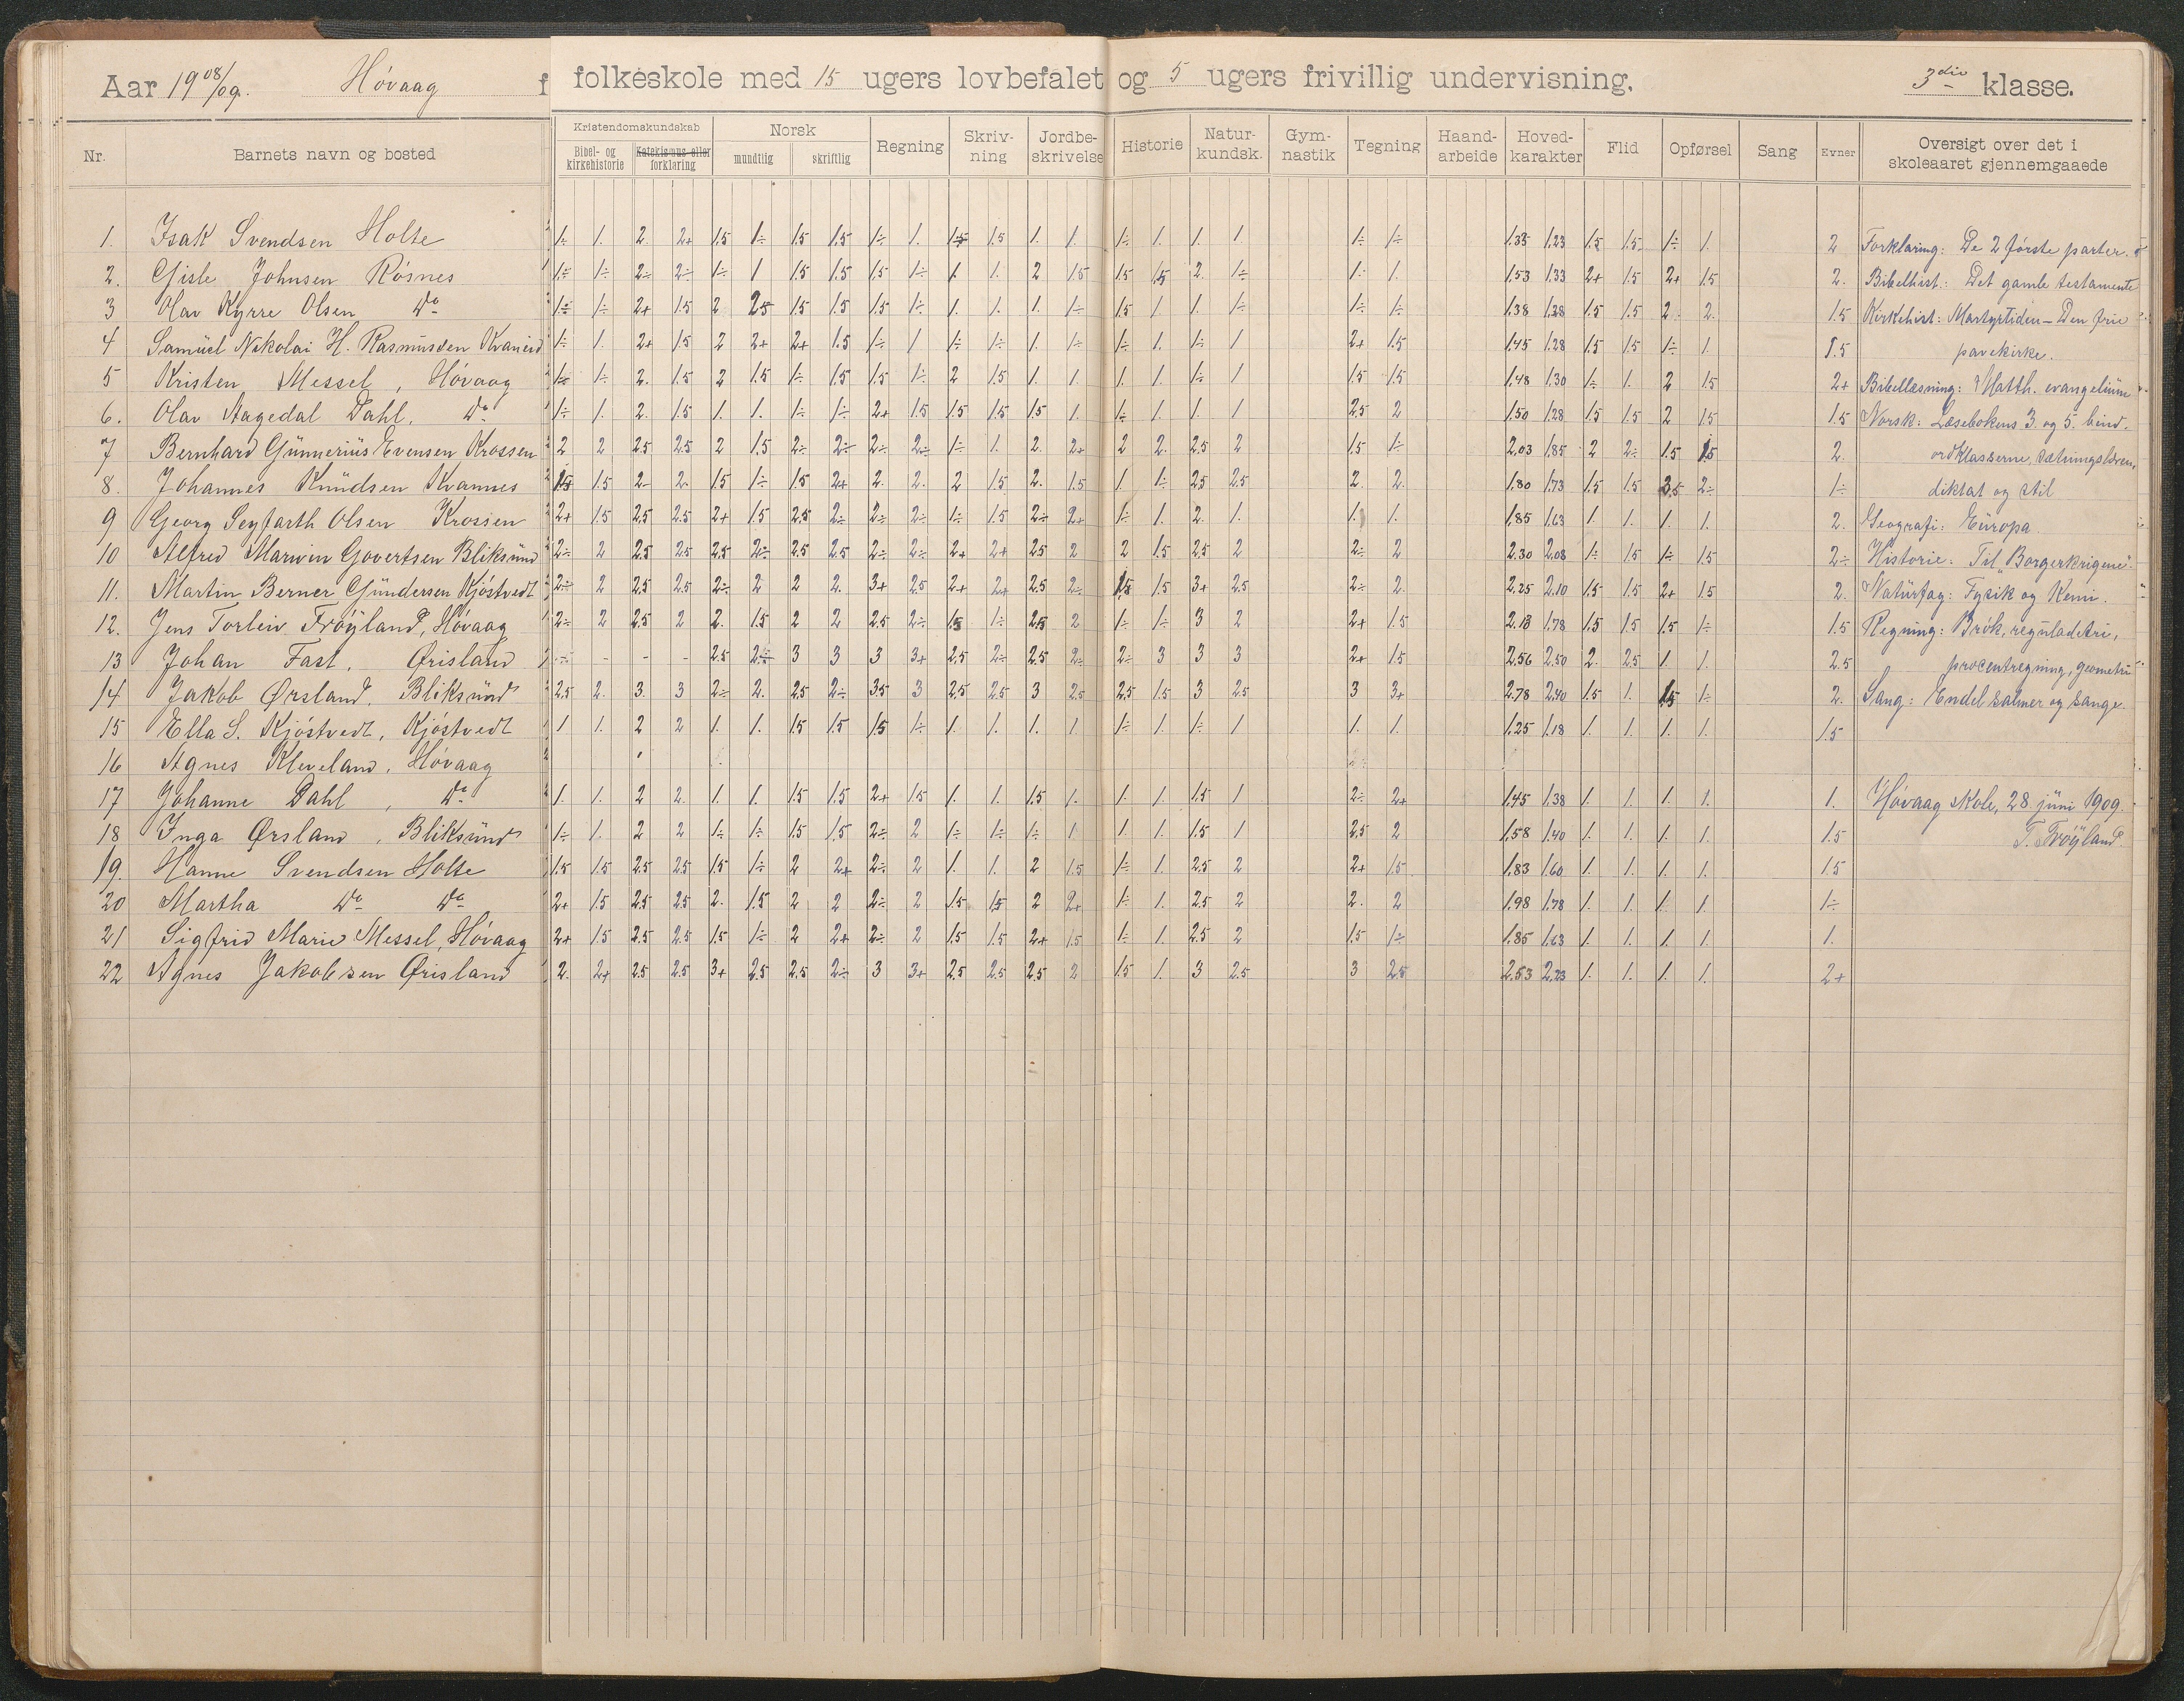 Aar 1908/09. Høvaag f folkeskole med 15 ugers lovbefalet og 5 ugers frivillig undervisning. 3die klasse.
Nr. Barnets navn og bosted Kristendomskundskab Bibel- og kirkehistorie Katekismus eller forklaring Norsk mundtlig skriftlig Regning Skriv-ning Jordbe-skrivelse Historie Natur-kundsk. Gym-nastik Tegning Haand-arbeide Hoved-karakter Flid Opførsel Sang Evner Oversigt over det i skoleaaret gjennemgaaede
1. Isak Svendsen Holte 1÷ 1. 2. 2+ 1.5 1÷ 1.5 1.5 1÷ 1. 1.5 1.5 1. 1. 1÷ 1. 1. 1 1÷ 1÷ 1.33 1.23 1.5 1.5 1÷ 1. 2 Forklaring: De 2 første parter.
2. Gisle Johnsen Røsnes 1÷ 1÷ 2÷ 2÷ 1÷ 1 1.5 1.5 1.5 1÷ 1. 1. 2 1.5 1.5 1.5 2. 1÷ 1. 1. 1.53 1.33 2+ 1.5 2+ 1.5 2. Bibelhist.: Det gamle testamente
3 Olav Kyrre Olsen Do 1÷ 1÷ 2+ 1.5 2 2.5 1.5 1.5 1.5 1÷ 1. 1. 1. 1÷ 1.5 1. 1. 1÷ 1÷ 1÷ 1.38 1.28 1.5 1.5 2 2. 1.5 Kirkehist: Martyrtiden – Den frie
4 Samuel Nikolai H. Rasmussen 1÷ 1. 2+ 1.5 2 2+ 2+ 1.5 1÷ 1 1÷ 1÷ 1. 1÷ 1÷ 1. 1÷ 1 2+ 1.5 1.45 1.28 1.5 1.5 1÷ 1. 1.5 pavekirke.
5 Kristen Messel, Høvaag 1÷ 1÷ 2. 1.5 2 1.5 1÷ 1.5 1.5 1÷ 2 1.5 1. 1. 1. 1. 1÷ 1 1.5 1.5 1.48 1.30 1÷ 1. 2 1.5 2+ Bibellæsning: Matth. evangelium
6. Olav Aagedal Dahl, Do 1÷ 1. 2. 1.5 1. 1. 1÷ 1÷ 2+ 1.5 1.5 1.5 1.5 1. 1÷ 1. 1. 1 2.5 2 1.50 1.28 1.5 1.5 2 1.5 1.5 Norsk: Læsebokens 3. og 5. bind.
7 Bernhard Gunnerius Evensen Krossen 2 2 2.5 2.5 2 1.5 2÷ 2÷ 2÷ 2÷ 1÷ 1. 2. 2+ 2 2. 2.5 2 1.5 1÷ 2.03 1.85 2 2÷ 1.5 1.5 2. ordklasserne, sætningslæren,
8. Johannes Knudsen Kvannes 1.5 1.5 2- 2. 1.5 1÷ 1.5 2+ 2. 2. 2 1.5 2. 1.5 1 1÷ 2.5 2.5 2. 2. 1.80 1.73 1.5 1.5 3.5 2÷ 1÷ diktat og stil
9 Georg Seyfarth Olsen Krossen 2+ 1.5 2.5 2.5 2+ 1.5 2.5 2÷ 2÷ 2÷ 1÷ 1.5 2÷ 2+ 1÷ 1. 2. 1. 1. 1. 1.85 1.63 1. 1. 1. 1. 2. Geografi: Europa.
10 Alfred Marwin Govertsen Bliksund 2÷ 2 2.5 2.5 2.5 2÷ 2.5 2.5 2÷ 2÷ 2+ 2+ 2.5 2 2 1.5 2.5 2 2÷ 2 2.30 2.08 1÷ 1.5 1÷ 1.5 2÷ Historie: Til "Borgerkrigene".
11. Martin Berner Gundersen Kjøstvedt 2÷ 2 2.5 2.5 2÷ 2 2 2. 3+ 2.5 2+ 2+ 2.5 2÷ 1.5 1.5 3+ 2.5 2÷ 2. 2.25 2.10 1.5 1.5 2+ 1.5 2. Naturfag: Fysik og Kemi.
12. Jens Torleiv Frøyland, Høvaag 2÷ 2 2.5 2 2. 1.5 2 2 2.5 2÷ 1.5 1÷ 2.5 2 1÷ 1÷ 3 2 2+ 1.5 2.18 1.78 1.5 1.5 1.5 1÷ 1.5 Regning: Brøk, reguladetri,
13 Johan Fast, Ørisland - - - - 2.5 2÷ 3 3 3 3+ 2.5 2÷ 2.5 2÷ 2÷ 3 3 3 2+ 1.5 2.56 2.50 2. 2.5 1. 1. 2.5 procentregning, geometri
14 Jakob Ørsland. Bliksund 2.5 2. 3. 3 2÷ 2. 2.5 2÷ 3.5 3 2.5 2.5 3 2.5 2.5 1.5 3 2.5 3 3+ 2.78 2.40 1.5 1. 1.5 1÷ 2. Sang: Endel salmer og sange.
15 Ella S. Kjøstvedt, Kjøstvedt 1 1. 2 2 1. 1. 1.5 1.5 1.5 1÷ 1. 1. 1. 1 1÷ 1. 1÷ 1 1. 1. 1.25 1.18 1. 1. 1. 1. 1.5
16 Agnes Kleveland, Høvaag
17 Johanne Dahl, Do 1. 1. 2 2. 1. 1. 1.5 1.5 2+ 1.5 1. 1. 1.5 1. 1. 1. 1.5 1 2÷ 2+ 1.45 1.38 1. 1. 1. 1. 1. Høvaag skole, 28. juni 1909.
18 Inga Ørsland, Bliksund 1÷ 1. 2 2 1÷ 1÷ 1.5 1.5 2÷ 2 1÷ 1÷ 1÷ 1 1. 1. 1.5 1 2.5 2 1.58 1.40 1. 1. 1. 1. 1.5 T. Frøyland.
19. Hanne Svendsen Holte 1.5 1.5 2.5 2.5 1.5 1÷ 2 2+ 2÷ 2 1. 1. 2 1.5 1÷ 1. 2.5 2 2+ 1.5 1.83 1.60 1. 1. 1. 1. 1.5
20 Martha Do Do 2+ 1.5 2.5 2.5 2. 1.5 2 2 2÷ 2 1.5 1.5 2 2+ 1÷ 1 2.5 2 2. 2 1.98 1.78 1. 1. 1. 1. 1÷
21 Sigfrid Marie Messel, Høvaag 2+ 1.5 2.5 2.5 1.5 1÷ 2 2+ 2÷ 2 1.5 1.5 2+ 1.5 1÷ 1. 2.5 2 1.5 1÷ 1.85 1.63 1. 1. 1. 1. 1.
22 Agnes Jakobsen Ørisland 2. 2+ 2.5 2.5 3+ 2.5 2.5 2÷ 3 3+ 2.5 2.5 2.5 2 1.5 1. 3 2.5 3 2.5 2.53 2.23 1. 1. 1. 1. 2+